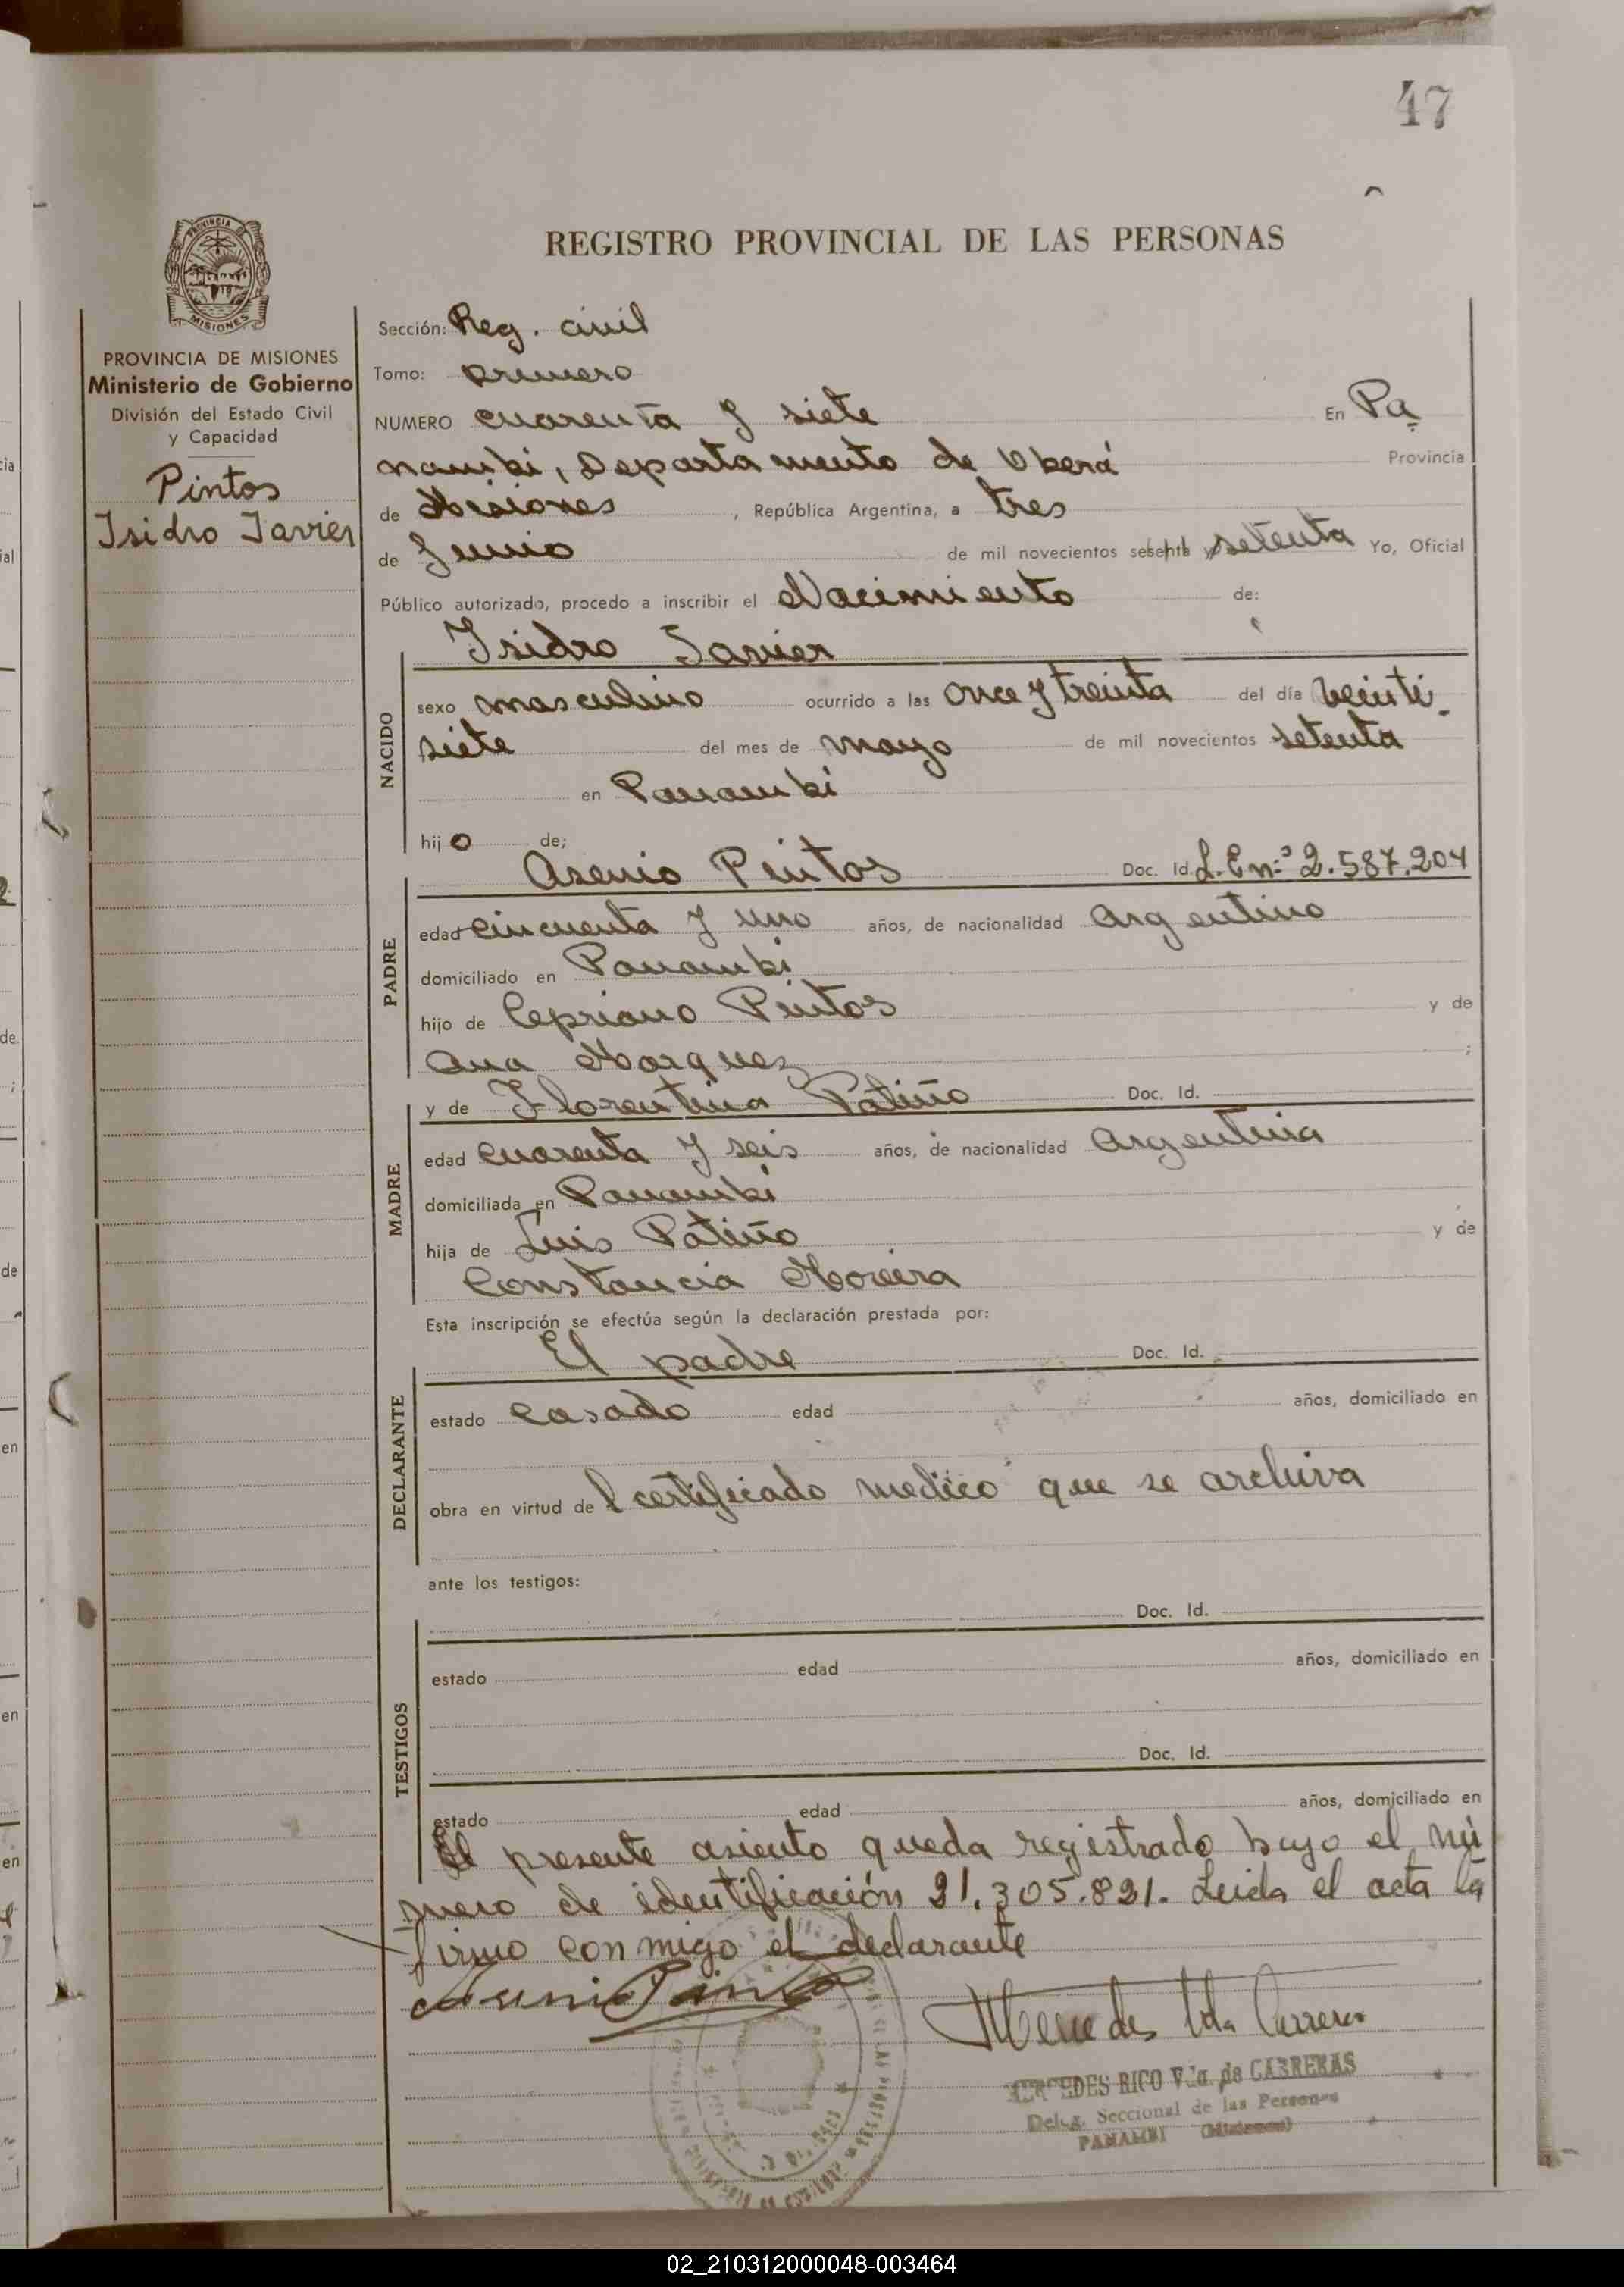 47
REGISTRO PROVINCIAL DE LAS PERSONAS
PROVINCIA DE
MISIONES
PROVINCIA DE MISIONES
Ministerio de Gobierno
División del Estado Civil
y Capacidad
Pintos
Isidro Javier
Sección: Reg. civil
Tomo: primero
NUMERO cuarenta y siete En Pa
nambi, Departamento de Oberá Provincia
de Misiones, República Argentina, a tres
de Junio de mil novecientos sesenta y setenta Yo, Oficial
Público autorizado, procedo a inscribir el Nacimiento de:
Isidro Javier
NACIDO
sexo masculino ocurrido a las once y treinta del día veinti-
siete del mes de mayo de mil novecientos setenta
en Panambi
hijo de;
PADRE
Asenio Pintos Doc. Id. L.E nº 2.587.204
edad cincuenta y uno años, de nacionalidad argentino
domiciliado en Panambi
hijo de Cepriano Pintos y de
Ana Marquez ;
MADRE
y de Florentina Patiño Doc. Id.
edad cuarenta y seis años, de nacionalidad argentina
domiciliada en Panambi
hija de Luis Patiño y de
Constancia Moreira
Esta inscripción se efectúa según la declaración prestada por:
DECLARANTE
El padre Doc. Id.
estado casado edad años, domiciliado en
obra en virtud del certificado medico que se archiva
ante los testigos:
TESTIGOS
Doc. Id.
estado edad años, domiciliado en
Doc. Id.
estado edad años, domiciliado en
El presente asiento queda registrado bajo el nú
mero de identificación 21.305.821. Leida el acta la
firmo conmigo el declarante
Mercedes Vda Carreras
MERCEDES RICO Vda. de CABRERAS
Deleg. Seccional de las Personas
PANAMBI (Misiones)
02_210312000048-003464